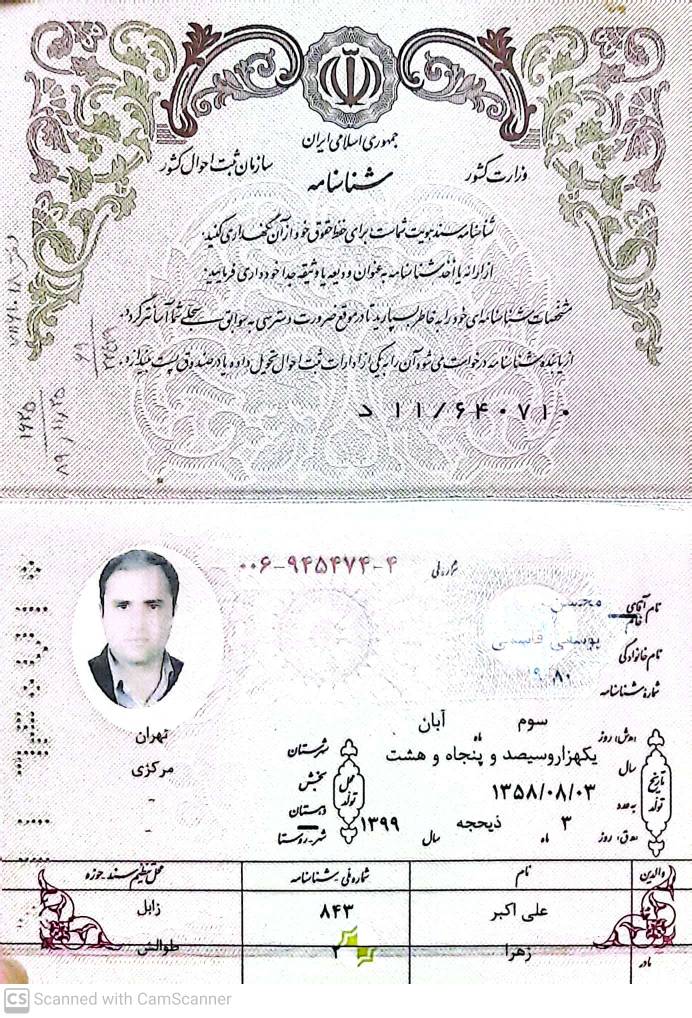 جمهوری اسلامی ایران
وزارت کشور
سازمان ثبت احوال کشور
شناسنامه
شناسنامه سند هویت شماست برای حفظ حقوق خود از آن نگهداری کنید.
از ارائه یا اخذ شناسنامه به عنوان ودیعه یا وثیقه جدا خودداری فرمایید.
مشخصات شناسنامه‌ای خود را به خاطر بسپارید تا در موقع ضرورت دسترسی به سوابق سجلی شما آسانتر گردد.
از یابنده شناسنامه درخواست می شود آن را به یکی از ادارات ثبت احوال تحویل داده یا در صندوق پست بیندازد.
د ۱۱/۶۴۰۷۱۰
۱۶۲۵
۸۹/۱۱/۲۵
شماره ملی ۰۰۶-۹۴۵۴۷۴-۴
نام آقای خانم محسن
نام خانوادگی یوسفی قاسمی
شماره شناسنامه
ه.ش. روز سوم ماه آبان
سال یکهزاروسیصد و پنجاه و هشت
به عدد ۱۳۵۸/۰۸/۰۳
ه.ق. روز ۳ ماه ذیحجه سال ۱۳۹۹
تاریخ تولد
محل تولد
شهرستان تهران
بخش مرکزی
دهستان -
شهر-روستا -
والدین نام شماره ملی-شناسنامه محل تنظیم سند-حوزه
علی اکبر ۸۴۳ زابل
مادر زهرا ۲ طوالش
CS Scanned with CamScanner